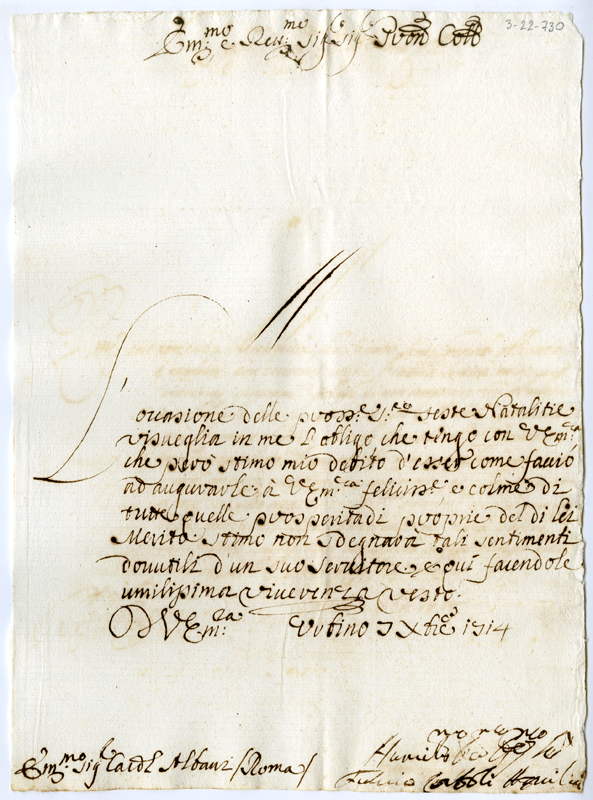 3-22-730
Em:mo e Reu:mo Sig Sig Pron Col
L'occasione delle pross:e S:te feste Natalitie
risueglia in me l'obligo che tengo con VEm:za
che però stimo mio debito d'esser come faccio
ad augurarle à VEm:za felicis:e, e colme di
tutte quelle prosperità di proprie del di lei
Merito stimo non sdegnarà tali sentimenti
douutili d'un suo Seruitore, e qui facendole
umilissima riuerenza resto.
D VEm:za Urbino 7 Xbre 1714
Em:mo Sig Cardl Albani (Roma)
Humilmo Deuo
Fuluio